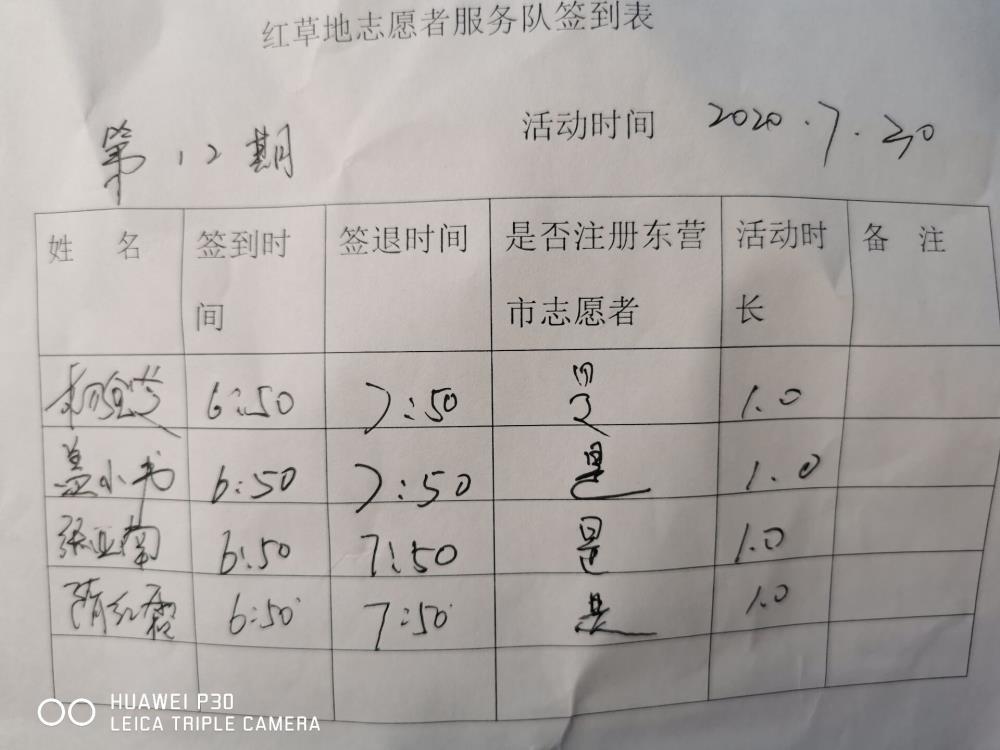 红草地志愿者服务队签到表
第12期 活动时间 2020.7.30
姓 名 签到时间 签退时间 是否注册东营市志愿者 活动时长 备 注
6:50 7:50 是 1.0
盖小书 6:50 7:50 是 1.0
张亚南 6:50 7:50 是 1.0
隋红霞 6:50 7:50 是 1.0
HUAWEI P30
LEICA TRIPLE CAMERA